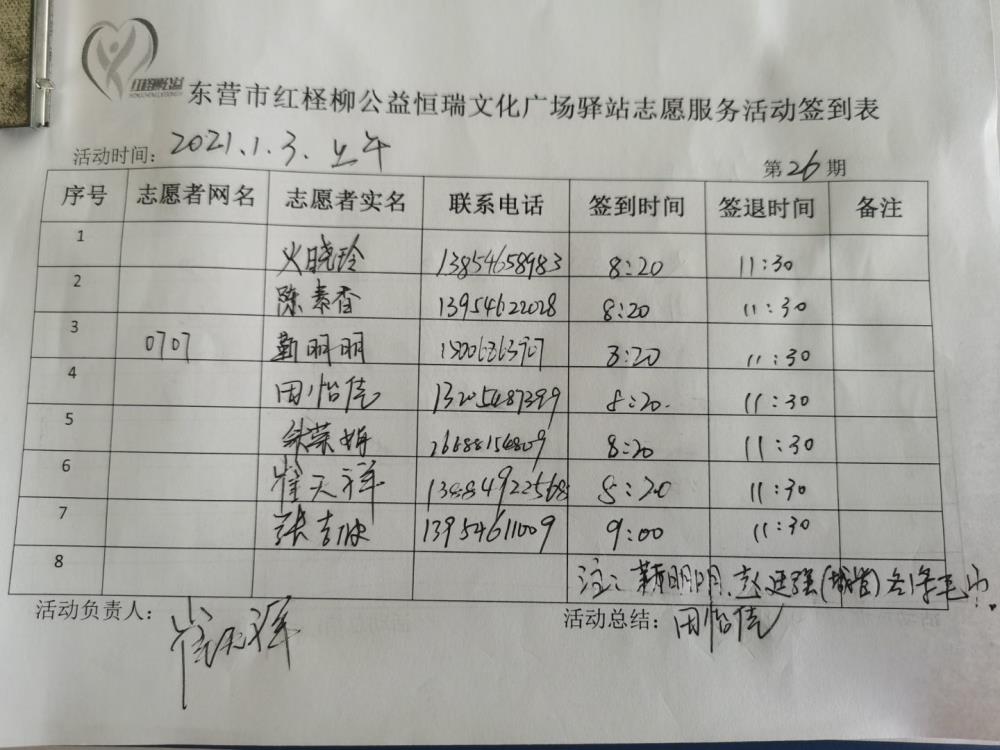 红柽柳公益
东营市红柽柳公益恒瑞文化广场驿站志愿服务活动签到表
活动时间: 2021.1.3.上午
第26期
序号 志愿者网名 志愿者实名 联系电话 签到时间 签退时间 备注
1 火晓玲 13854658983 8:20 11:30
2 陈素香 13954622028 8:20 11:30
3 0707 靳明明 8:20 11:30
4 田怡佳 13205487399 8:20. 11:30
5 8:20 11:30
6 崔天祥 8:20 11:30
7 张吉波 13954611009 9:00 11:30
8 注: 靳明明、赵廷强(城管)各
活动负责人: 崔天祥
活动总结: 田怡佳